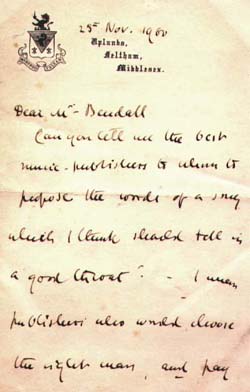 25th Nov. 1900
Uplands,
Feltham,
Middlesex.
Dear Mr. Bendall
Can you tell me the best
music-publishers to whom to
propose the words of a song
which I think should tell in
a good throat? - I mean
publishers who would choose
the right man, and pay